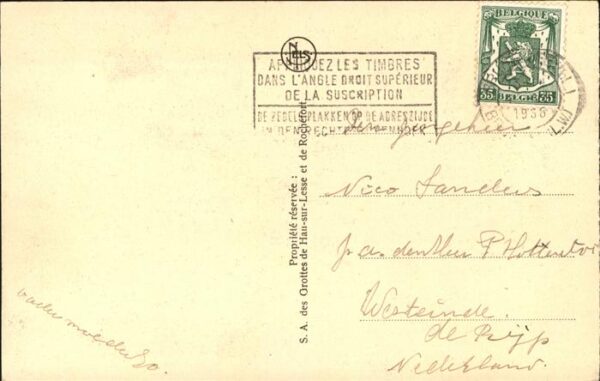 NELS
APPLIQUEZ LES TIMBRES
DANS L'ANGLE DROIT SUPÉRIEUR
DE LA SUSCRIPTION
DE ZEGELS PLAKKEN OP DE ADRESZIJDE
IN DEN RECHTER
BELGIQUE
35 BELGIË 35
1936
Propriété réservée :
S. A. des Grottes de Han-sur-Lesse et de Rochefort.
Den Jongeheer
Nico Sanders
p/a den Heer P
Westeinde
de Rijp
Nederland.